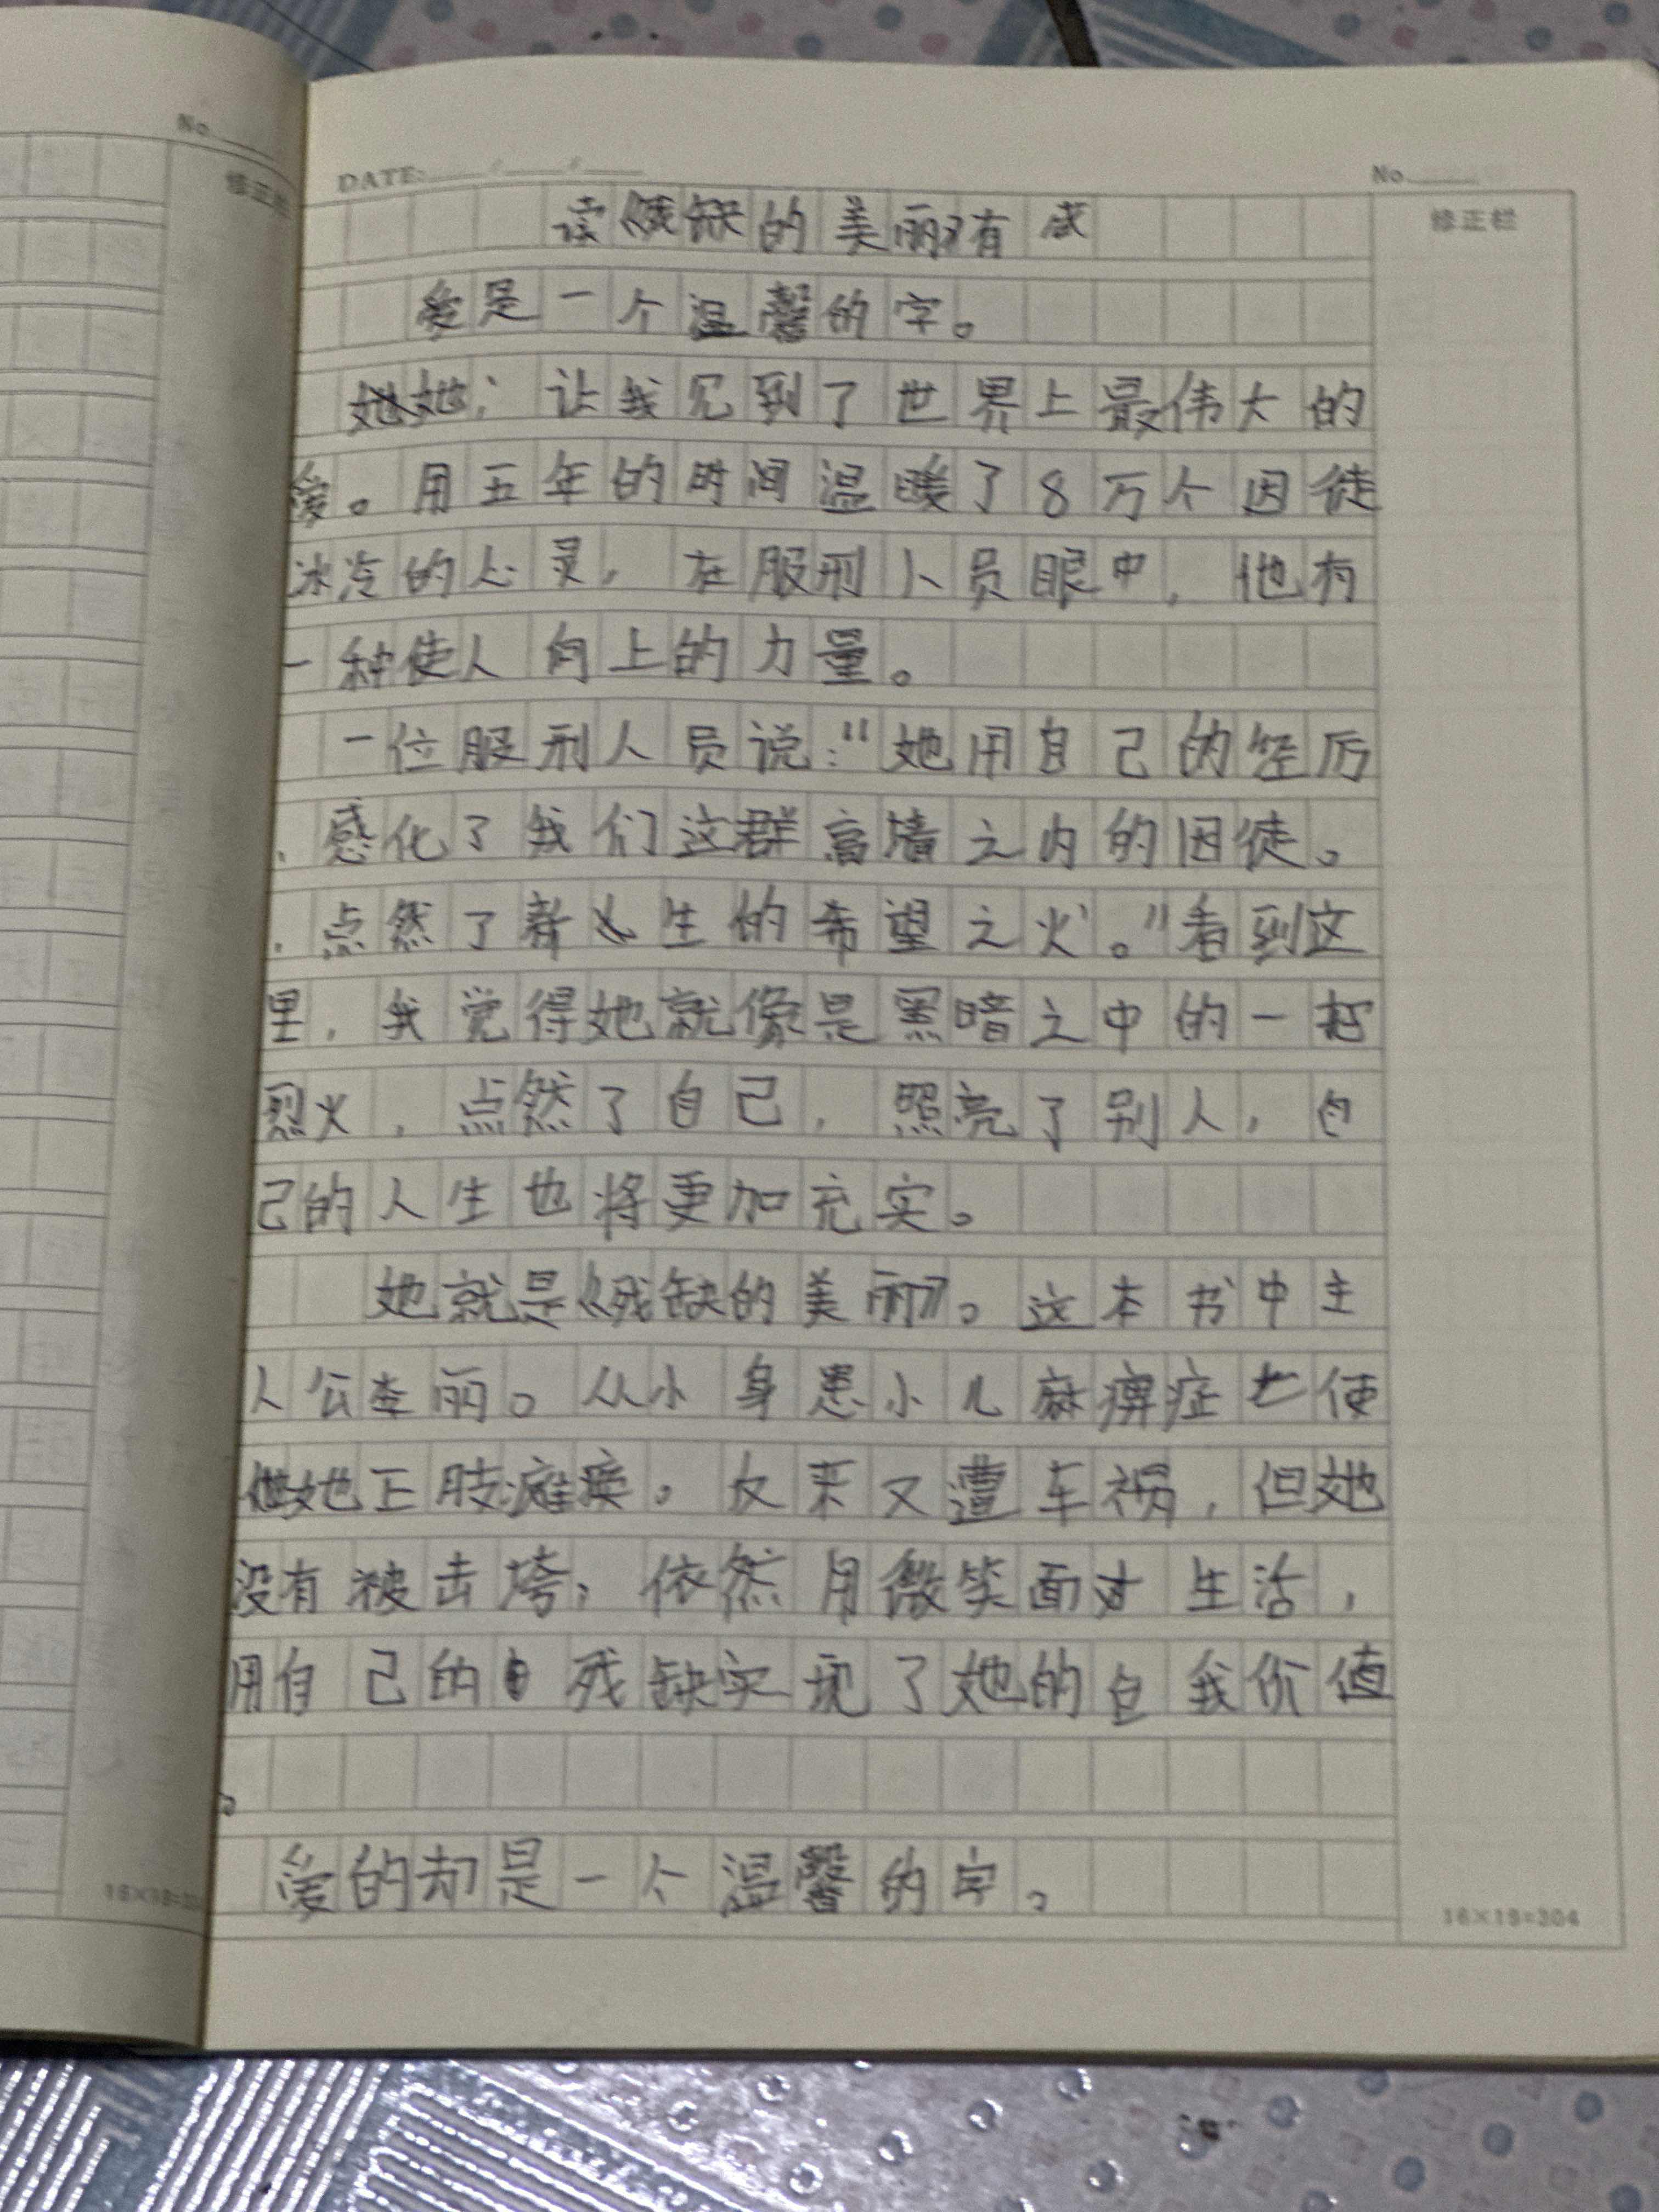 No
修正栏
DATE: / /
No
修正栏
读《残缺的美丽》有感
爱是一个温馨的字。
她，让我见到了世界上最伟大的
爱。用五年的时间温暖了8万个囚徒
冰冷的心灵，在服刑人员眼中，他有
一种使人向上的力量。
一位服刑人员说："她用自己的经历
、感化了我们这群高墙之内的囚徒。
、点然了新生的希望之火。"看到这
里，我觉得她就像是黑暗之中的一把
烈火，点然了自己，照亮了别人，自
己的人生也将更加充实。
她就是《残缺的美丽》。这本书中主
人公李丽。从小身患小儿麻痹症使
她下肢瘫痪。后来又遭车祸，但她
没有被击垮，依然用微笑面对生活，
用自己的残缺实现了她的自我价值
。
爱的却是一个温馨的字。
16×19=304
16×19=304